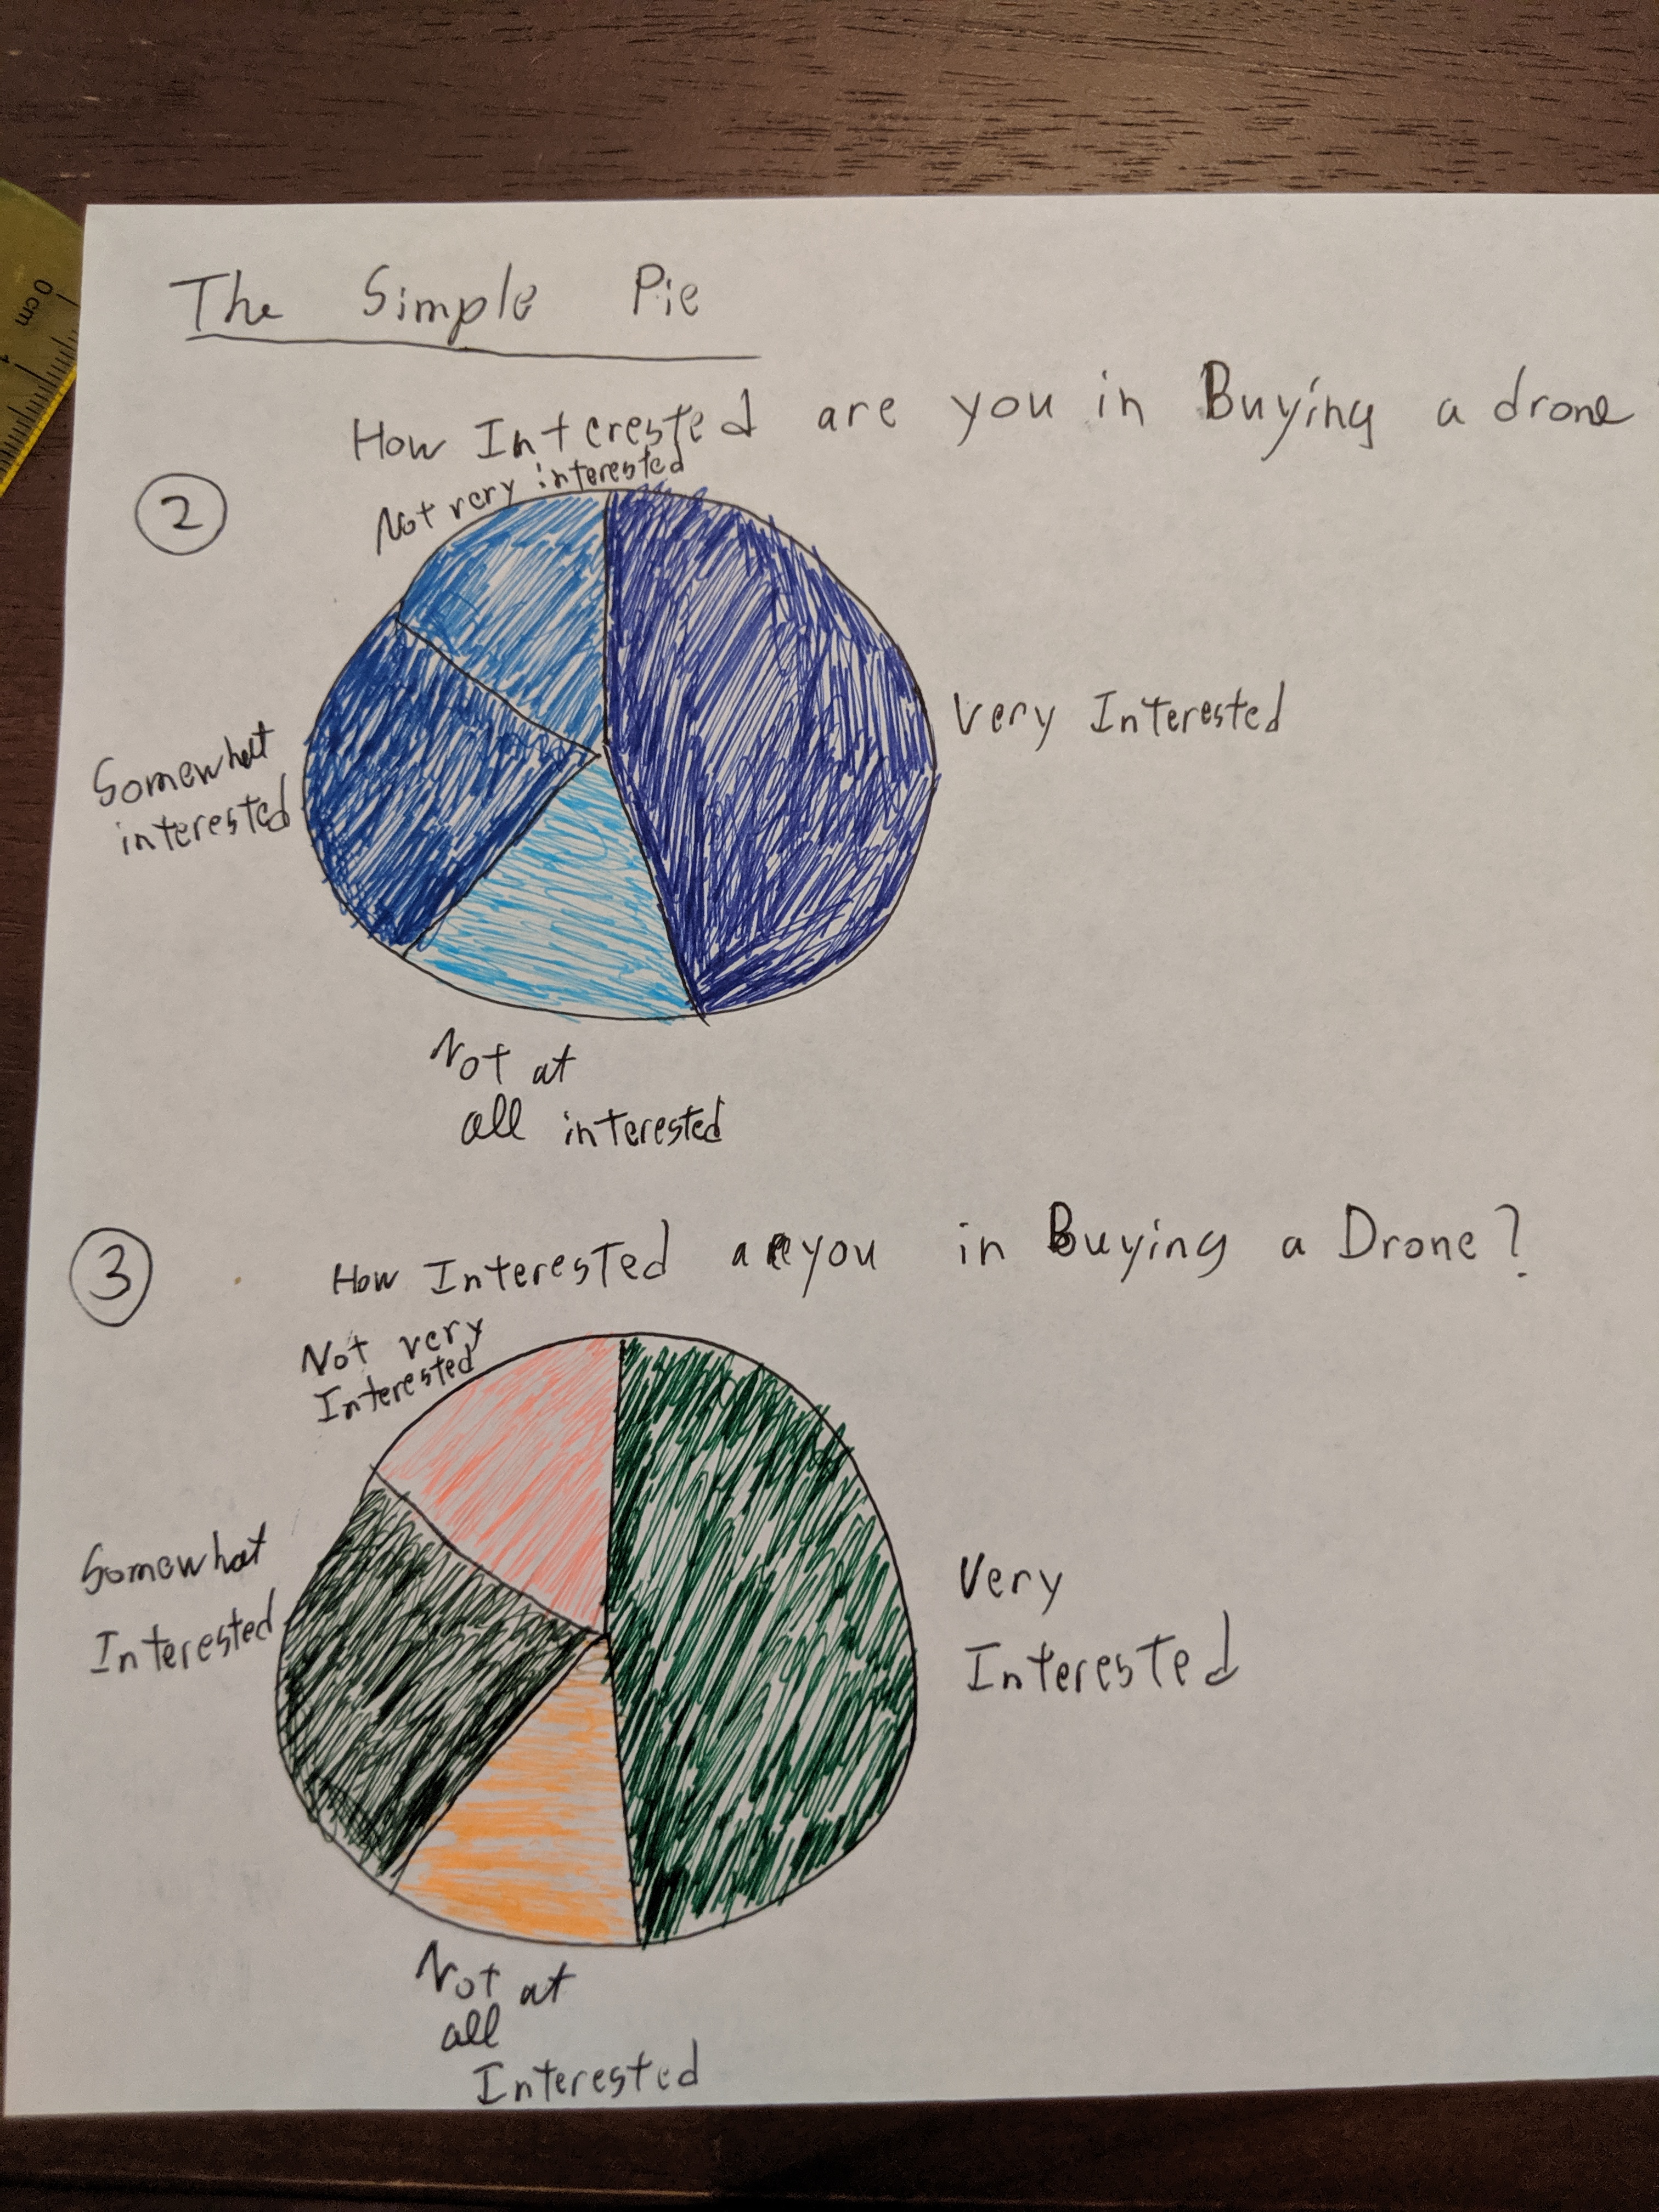 The Simple Pie
How Interested are you in Buying a drone
Not very interested
2
Very Interested
Somewhat
interested
Not at
all interested
3
How Interested are you in Buying a Drone?
Not very
Interested
Somewhat
Interested
Very
Interested
Not at
all
Interested
0 cm
1